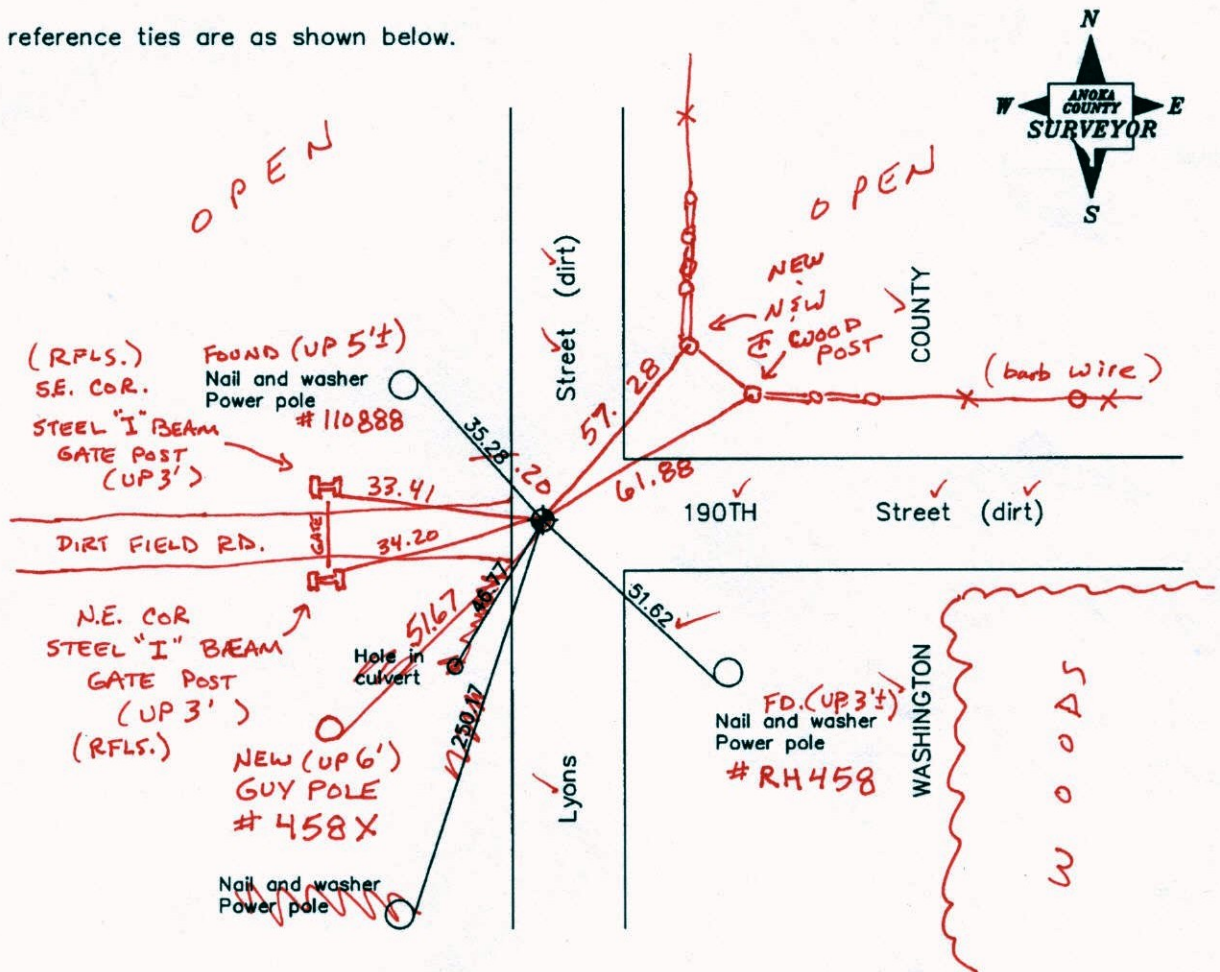 reference ties are as shown below.
N
W
ANOKA
COUNTY
SURVEYOR
E
S
OPEN
OPEN
Street (dirt)
NEW
N & W
℄ WOOD
POST
COUNTY
(barb wire)
(RFLS.)
S.E. COR.
STEEL "I" BEAM
GATE POST
(UP 3')
FOUND (UP 5'±)
Nail and washer
Power pole
# 110888
35.28
.20
57.28
61.88
33.41
GATE
34.20
DIRT FIELD RD.
190TH Street (dirt)
N.E. COR
STEEL "I" BEAM
GATE POST
(UP 3')
(RFLS.)
51.67
46.77
Hole in
culvert
250.17
51.62
NEW (UP 6')
GUY POLE
# 458X
Lyons
FD. (UP 3'±)
Nail and washer
Power pole
# RH458
WASHINGTON
WOODS
Nail and washer
Power pole